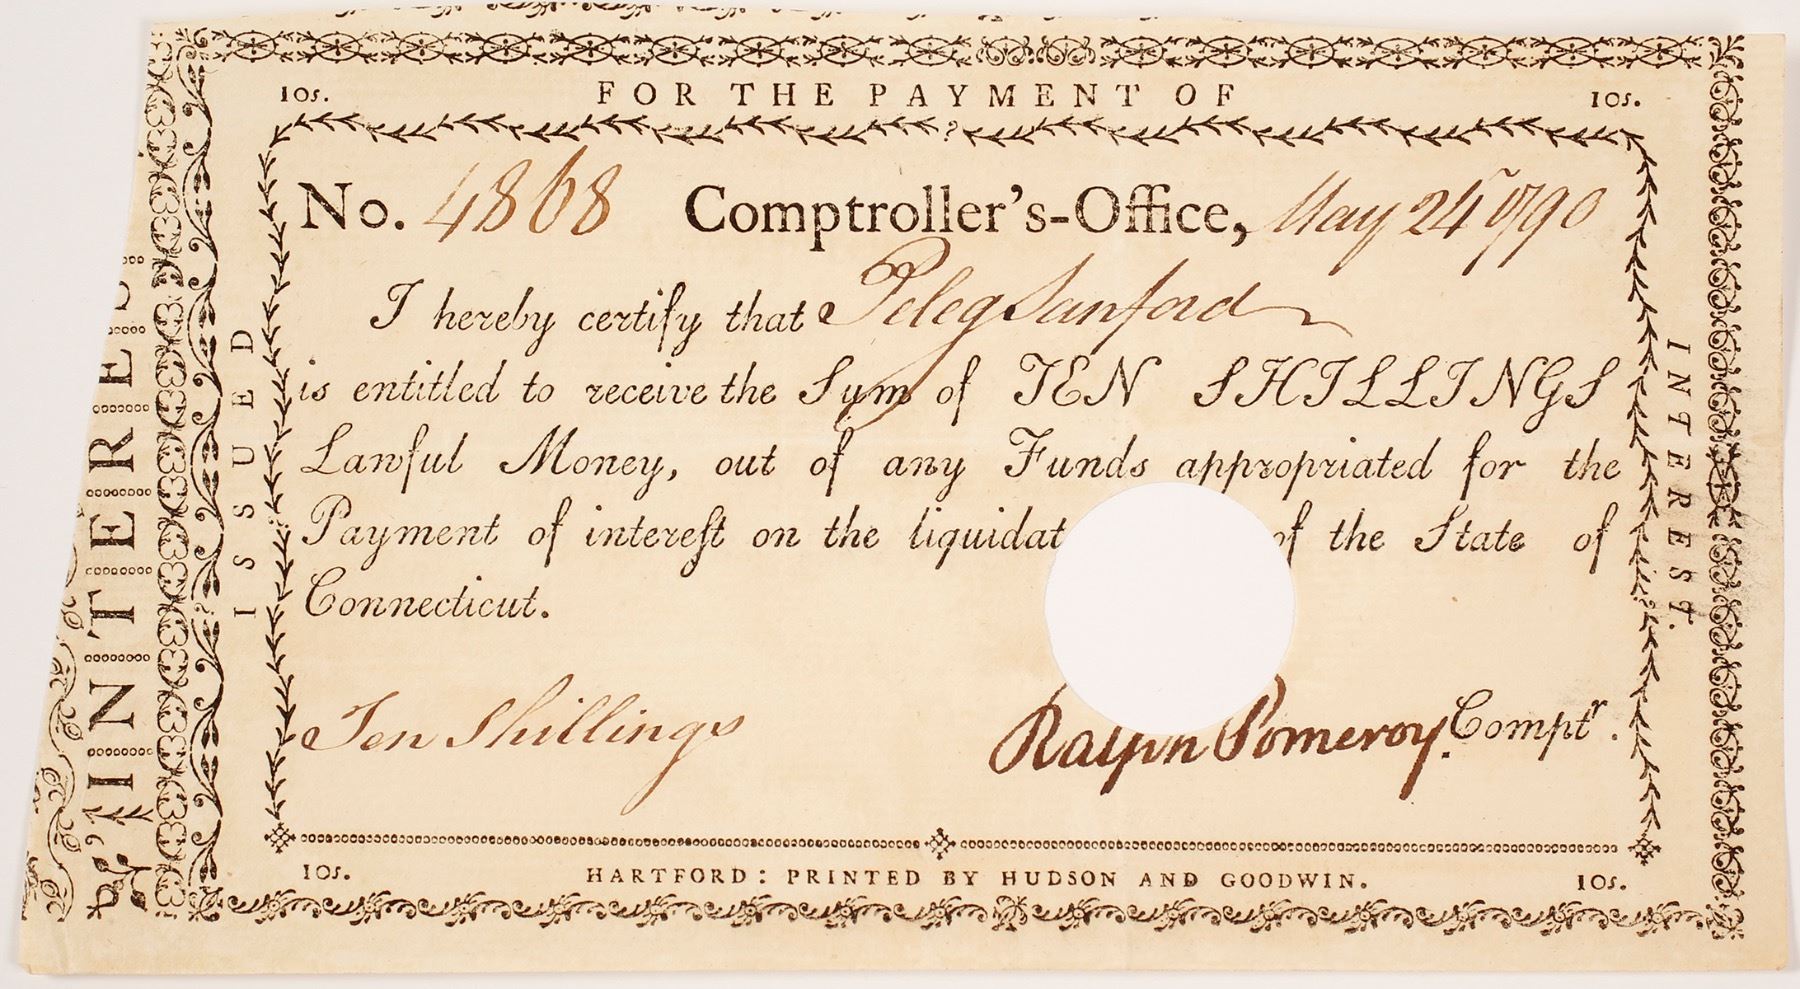 FOR THE PAYMENT OF
10s. 10s.
No. 4868 Comptroller's-Office, May 24th 1790
I hereby certify that Peleg Sanford
is entitled to receive the Sum of TEN SHILLINGS
Lawful Money, out of any Funds appropriated for the
Payment of intereſt on the liquidat of the State of
Connecticut.
Ten Shillings
Ralph Pomeroy. Comptr.
10s. HARTFORD: PRINTED BY HUDSON AND GOODWIN. 10s.
ISSUED
INTEREST.
INTERES